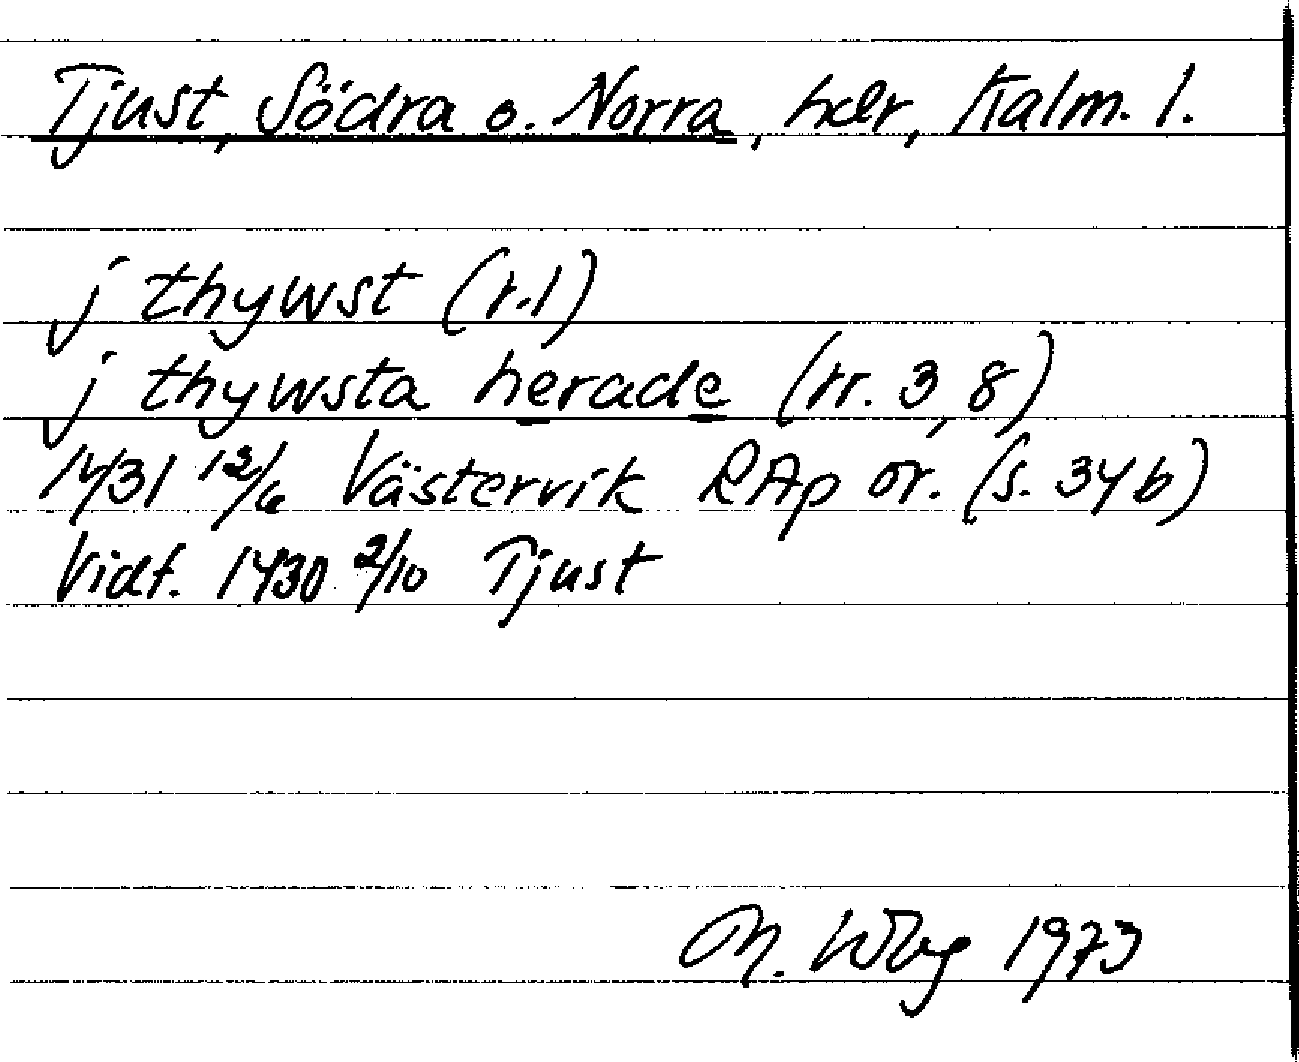 Tjust, Södra o. Norra, hdr, Kalm. l.
j thywst (r.1)
j thywsta herade (rr. 3, 8)
1431 12/6 Västervik RAp or. (s. 34b)
Vidf. 1430 2/10 Tjust
M. 1973